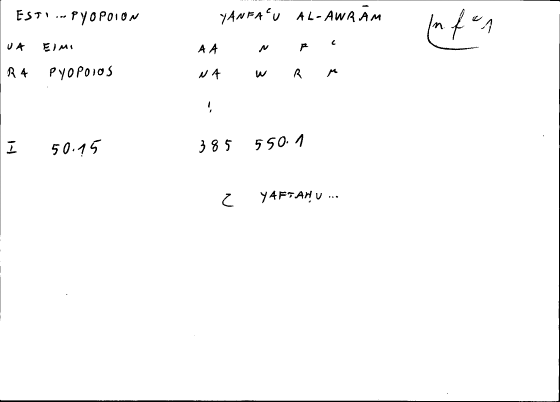 ESTI ... PYOPOION YANFAᶜU AL-AWRĀM nfᶜ1
VA EIMI AA N F ᶜ
RA PYOPOIOS NA W R M
!
I 50.15 385 550.1
C YAFTAḤU ...